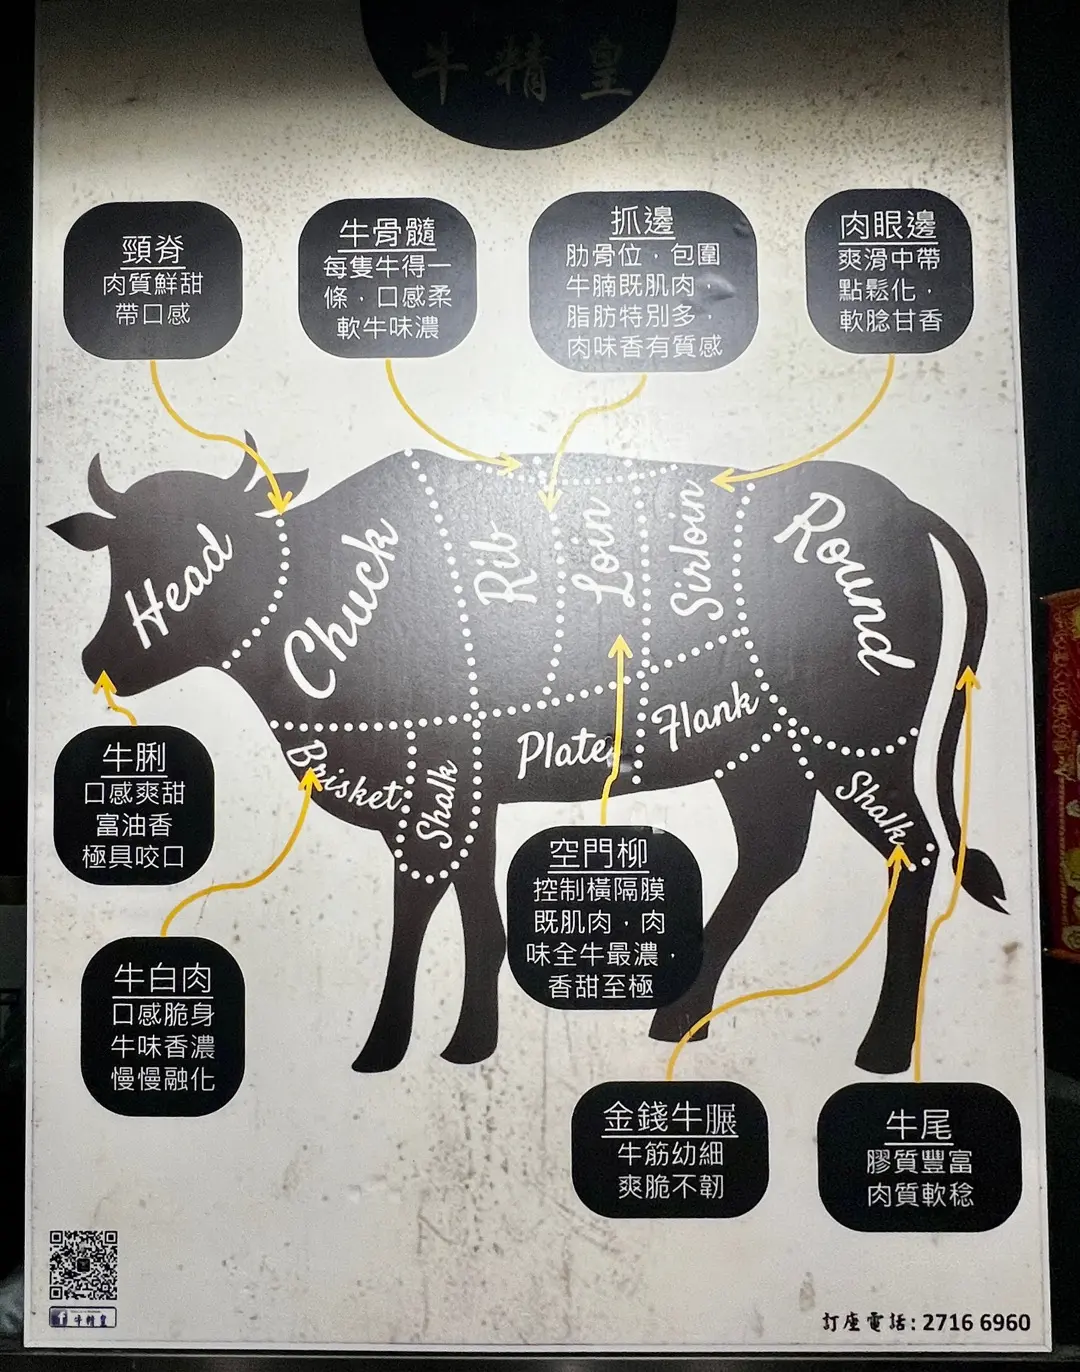 牛精皇
頸脊
肉質鮮甜
帶口感
牛骨髓
每隻牛得一
條，口感柔
軟牛味濃
抓邊
肋骨位，包圍
牛腩既肌肉，
脂肪特別多，
肉味香有質感
肉眼邊
爽滑中帶
點鬆化，
軟腍甘香
Head
Chuck
Rib
Loin
Sirloin
Round
Brisket
Shalk
Plate
Flank
Shalk
牛脷
口感爽甜
富油香
極具咬口
牛白肉
口感脆身
牛味香濃
慢慢融化
空門柳
控制橫隔膜
既肌肉，肉
味全牛最濃，
香甜至極
金錢牛𦟌
牛筋幼細
爽脆不韌
牛尾
膠質豐富
肉質軟稔
牛精皇
訂座電話: 2716 6960